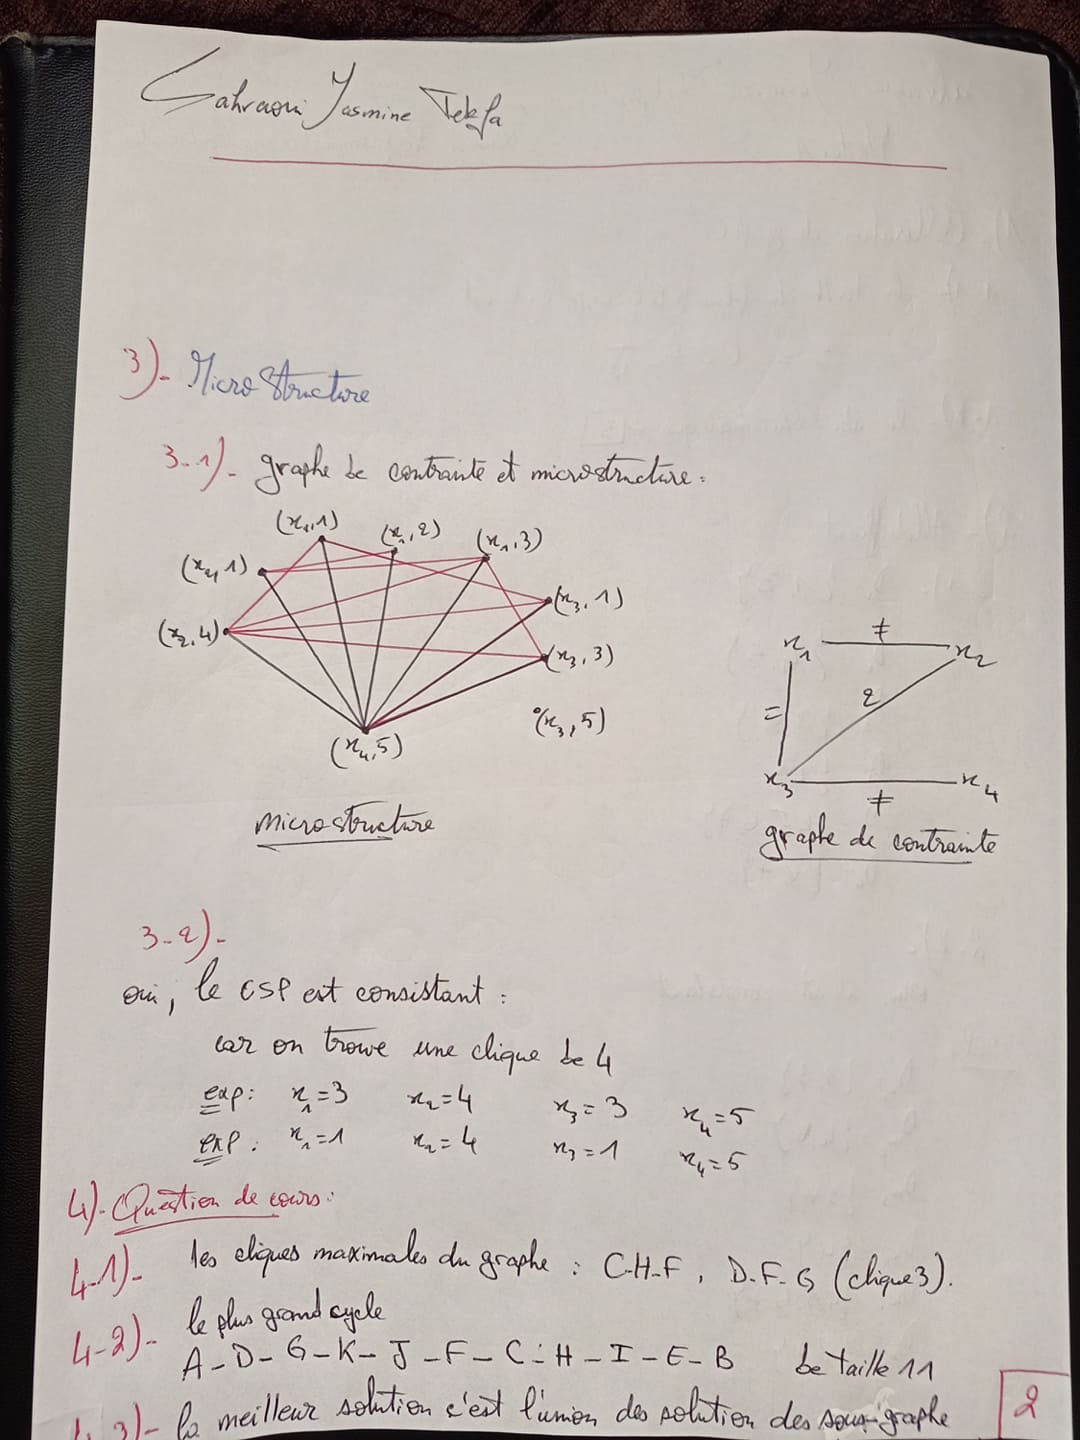 Sahraoui Yasmine Tekfa
3)- MicroStructure
3-1)- graphe de contrainte et microstructure:
(x1,1) (x1,2) (x1,3)
(x2,1)
(x2,4)
(x3,1)
(x3,3)
(x3,5)
(x4,5)
microstructure
x1 ≠ x2
= 2
x3 ≠ x4
graphe de contrainte
3-2)-
oui, le CSP est consistant :
car on trouve une clique de 4
exp: x1=3 x2=4 x3=3 x4=5
exp: x1=1 x2=4 x3=1 x4=5
4)- Question de cours:
4-1)- les cliques maximales du graphe : C-H-F, D-F-G (clique3).
4-2)- le plus grand cycle
A-D-G-K-J-F-C-H-I-E-B de taille 11
4-3)- la meilleur solution c'est l'union des solution des sous-graphe
2